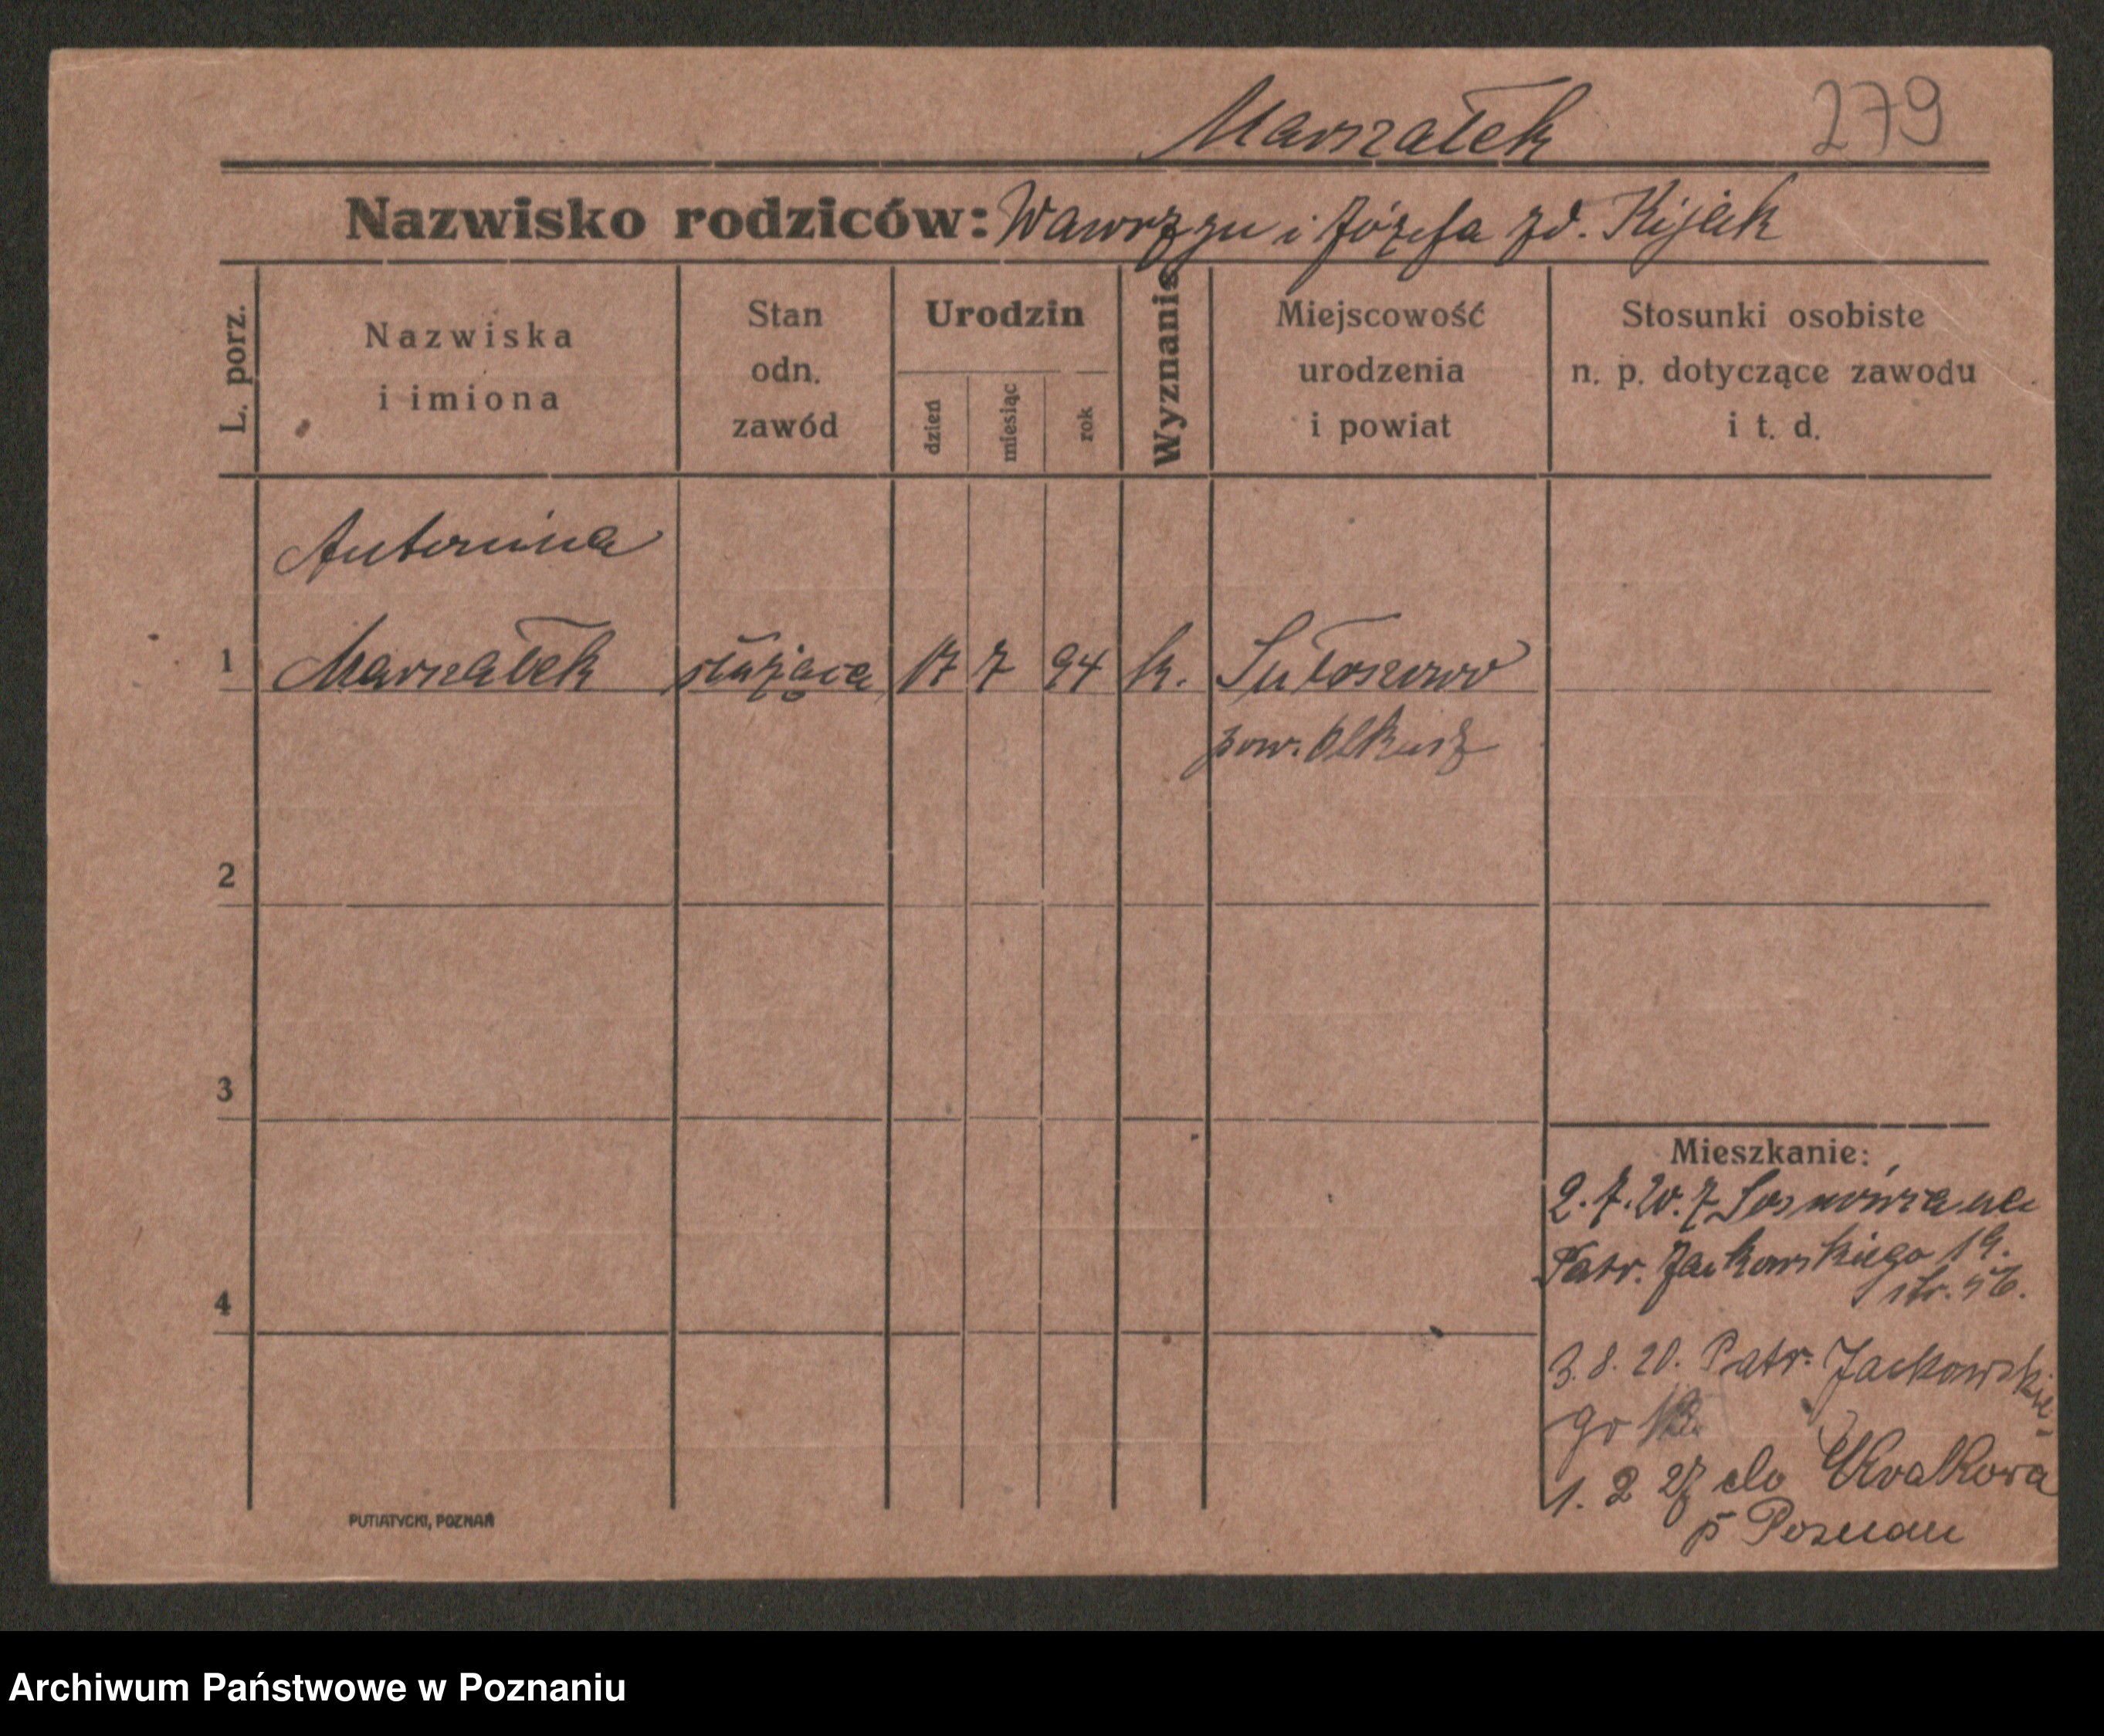 Marszałek 279
Nazwisko rodziców: Wawrzyn i Józefa zd. Kijak
L. porz.
Nazwiska
i imiona
Stan
odn.
zawód
Urodzin
dzień
miesiąc
rok
Wyznanie
Miejscowość
urodzenia
i powiat
Stosunki osobiste
n. p. dotyczące zawodu
i t. d.
Antonina
1 Marszałek służąca 17 7 94 k. Sułoszowo
pow. Olkusz
2
3
4
Mieszkanie:
2. 7. 20. z Sosnowca
Patr. Jackowskiego 19.
3. 8. 20. Patr. Jackowskie-
go
1. 2 27 do Krakowa
p Poznan
PUTIATYCKI, POZNAŃ
Archiwum Państwowe w Poznaniu